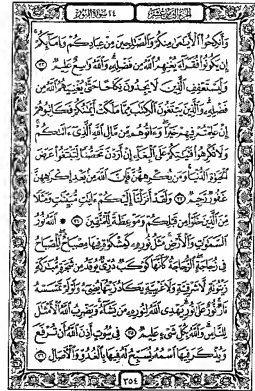 الجزء الثامن عشر سورة النور ٢٤
وَأَنكِحُوا۟ ٱلْأَيَـٰمَىٰ مِنكُمْ وَٱلصَّـٰلِحِينَ مِنْ عِبَادِكُمْ وَإِمَآئِكُمْ
إِن يَكُونُوا۟ فُقَرَآءَ يُغْنِهِمُ ٱللَّهُ مِن فَضْلِهِۦ وَٱللَّهُ وَٰسِعٌ عَلِيمٌ ٣٢
وَلْيَسْتَعْفِفِ ٱلَّذِينَ لَا يَجِدُونَ نِكَاحًا حَتَّىٰ يُغْنِيَهُمُ ٱللَّهُ مِن
فَضْلِهِۦ وَٱلَّذِينَ يَبْتَغُونَ ٱلْكِتَـٰبَ مِمَّا مَلَكَتْ أَيْمَـٰنُكُمْ فَكَاتِبُوهُمْ
إِنْ عَلِمْتُمْ فِيهِمْ خَيْرًا وَءَاتُوهُم مِّن مَّالِ ٱللَّهِ ٱلَّذِىٓ ءَاتَىٰكُمْ
وَلَا تُكْرِهُوا۟ فَتَيَـٰتِكُمْ عَلَى ٱلْبِغَآءِ إِنْ أَرَدْنَ تَحَصُّنًا لِّتَبْتَغُوا۟ عَرَضَ
ٱلْحَيَوٰةِ ٱلدُّنْيَا وَمَن يُكْرِههُّنَّ فَإِنَّ ٱللَّهَ مِنۢ بَعْدِ إِكْرَٰهِهِنَّ
غَفُورٌ رَّحِيمٌ ٣٣ وَلَقَدْ أَنزَلْنَآ إِلَيْكُمْ ءَايَـٰتٍ مُّبَيِّنَـٰتٍ وَمَثَلًا
مِّنَ ٱلَّذِينَ خَلَوْا۟ مِن قَبْلِكُمْ وَمَوْعِظَةً لِّلْمُتَّقِينَ ٣٤ ۞ ٱللَّهُ نُورُ
ٱلسَّمَـٰوَٰتِ وَٱلْأَرْضِ مَثَلُ نُورِهِۦ كَمِشْكَوٰةٍ فِيهَا مِصْبَاحٌ ٱلْمِصْبَاحُ
فِى زُجَاجَةٍ ٱلزُّجَاجَةُ كَأَنَّهَا كَوْكَبٌ دُرِّىٌّ يُوقَدُ مِن شَجَرَةٍ مُّبَـٰرَكَةٍ
زَيْتُونَةٍ لَّا شَرْقِيَّةٍ وَلَا غَرْبِيَّةٍ يَكَادُ زَيْتُهَا يُضِىٓءُ وَلَوْ لَمْ تَمْسَسْهُ
نَارٌ نُّورٌ عَلَىٰ نُورٍ يَهْدِى ٱللَّهُ لِنُورِهِۦ مَن يَشَآءُ وَيَضْرِبُ ٱللَّهُ ٱلْأَمْثَـٰلَ
لِلنَّاسِ وَٱللَّهُ بِكُلِّ شَىْءٍ عَلِيمٌ ٣٥ فِى بُيُوتٍ أَذِنَ ٱللَّهُ أَن تُرْفَعَ
وَيُذْكَرَ فِيهَا ٱسْمُهُۥ يُسَبِّحُ لَهُۥ فِيهَا بِٱلْغُدُوِّ وَٱلْـَٔاصَالِ ٣٦
٣٥٤